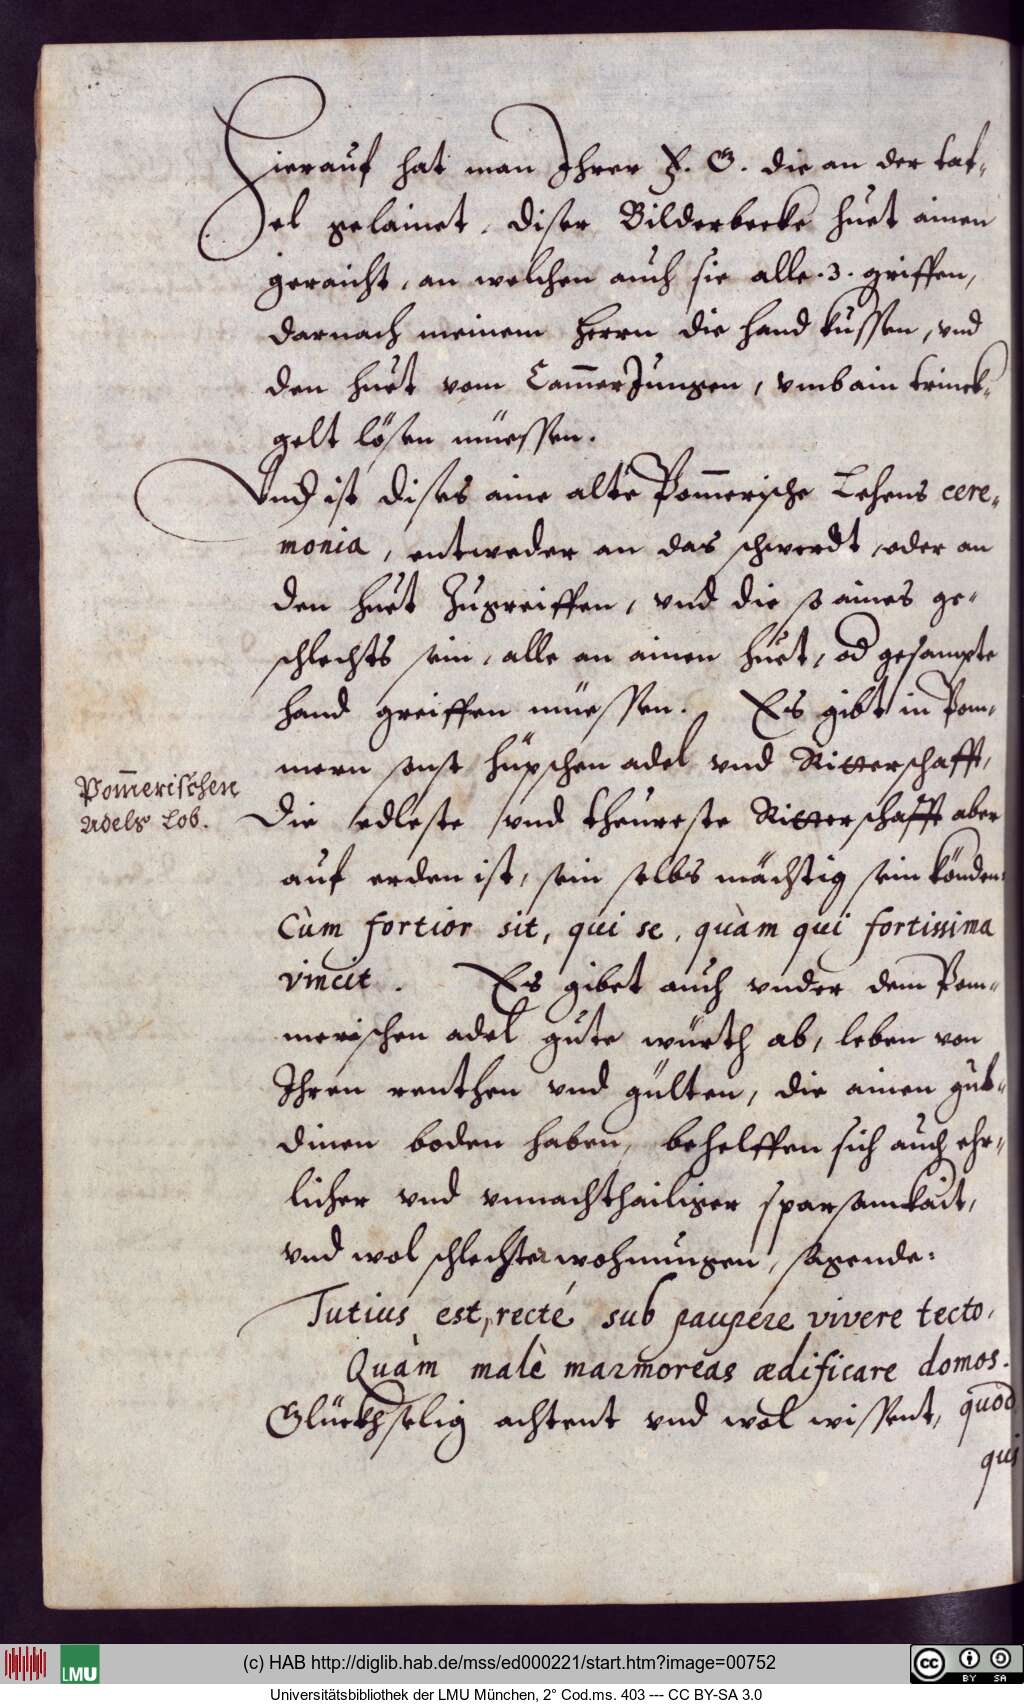 Hierauf hat man Ihrer F. G. die an der taf-
el gelainet, diser Bilderbecke huet ainen
geraicht, an welchen auch sie alle .3. griffen,
darnach meinem herrn die hand küssen, vnd
den huet vom Cam̄erJungen, vmb ain trinck-
gelt lösen müessen.
Vnd ist dises aine alte Pom̄erische Lehens cere-
monia, entweder an das schwerdt, oder an
den huet Zugreiffen, vnd die so aines ge-
schlechts sein, alle an ainen huet, od gesampte
hand greiffen müessen. Es gibt in Pom-
mern sonst hüpschen adel vnd Ritterschafft,
Pom̄erischen
Adels Lob.
Die edleste vnd theureste Ritterschafft aber
auf erden ist, sein selbs mächtig sein könden:
Cùm fortior sit, qui se, quàm qui fortissima
vincit. Es gibet auch vnder dem Pom-
merischen adel gute würth ab, leben von
Ihren renthen vnd gülten, die ainen gul-
dinen boden haben, behelffen sich auch ehr-
licher vnd vnnachthailiger sparsamkait,
vnd wol schlechter wohnungen, sagende:
Tutius est, recté sub paupere vivere tecto,
Quàm malè marmoreas ædificare domos.
Glückhselig achtent vnd wol wissent, quòd
qui
(c) HAB http://diglib.hab.de/mss/ed000221/start.htm?image=00752
LMU
BY SA
Universitätsbibliothek der LMU München, 2° Cod.ms. 403 --- CC BY-SA 3.0